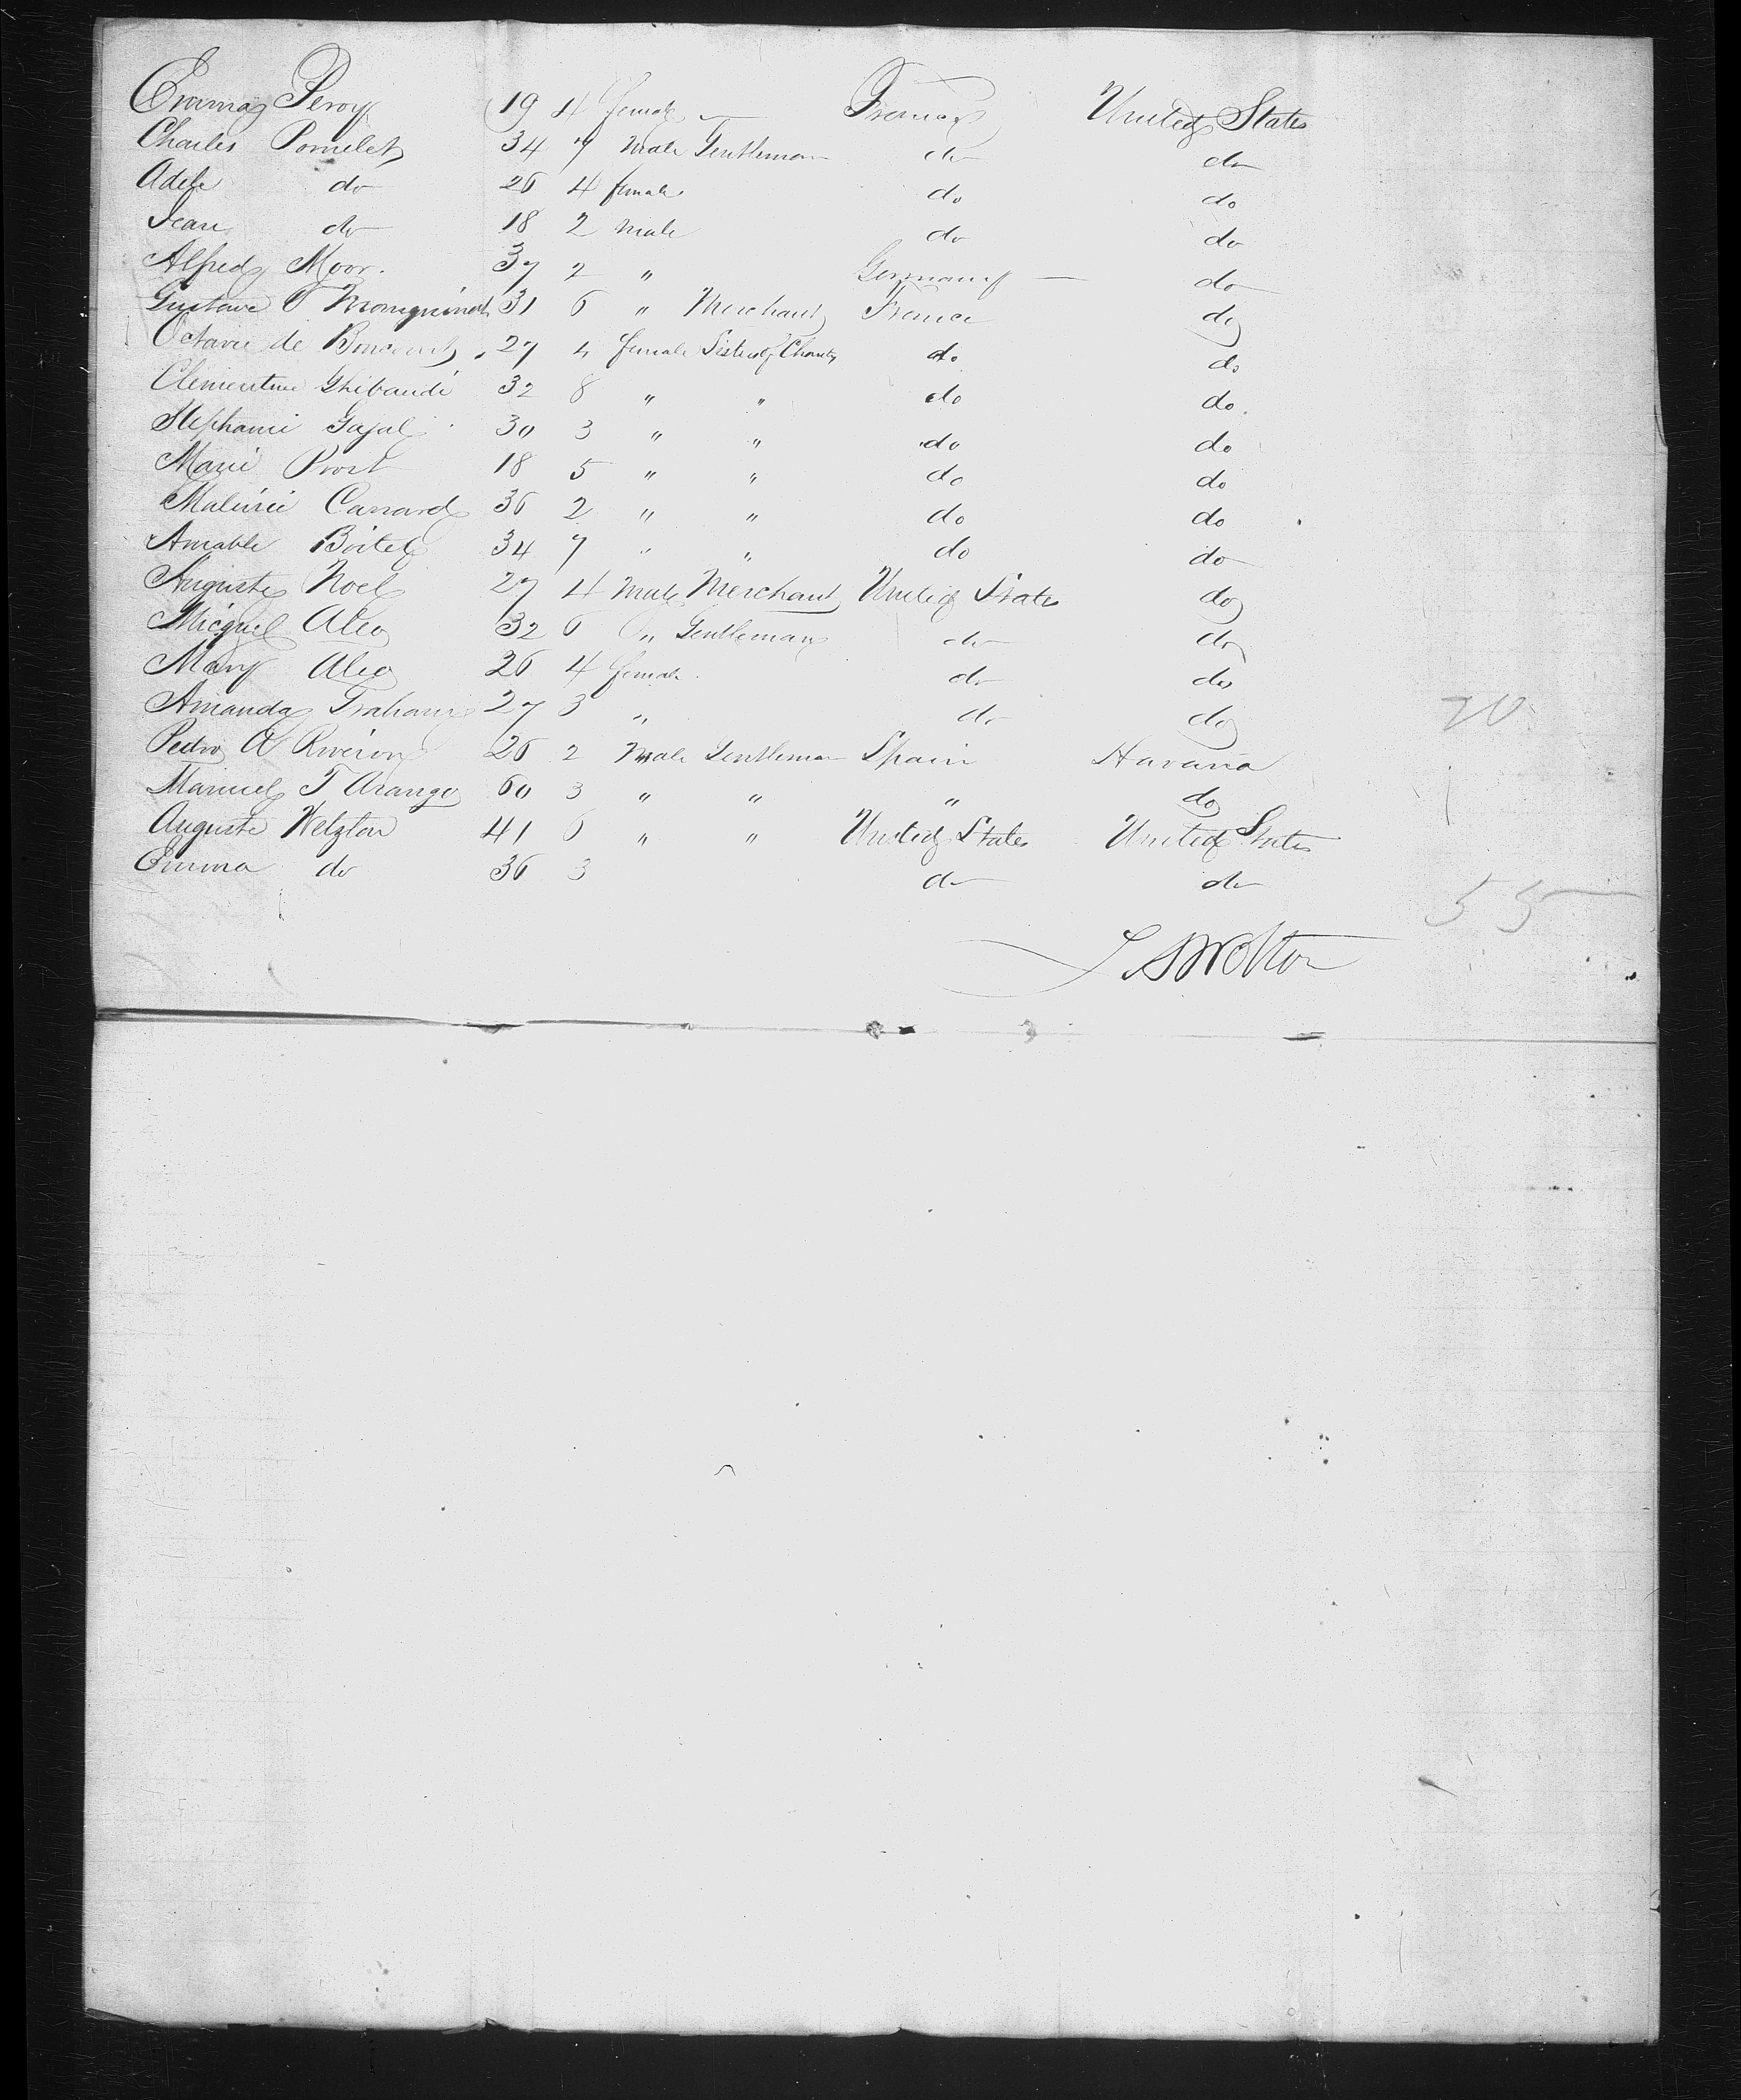 Emma Peroy 19 4 female — France United States
Charles Pomelet 34 7 Male Gentleman do do
Adele do 26 4 female do do
Jean do 18 2 Male do do
Alfred Moor. 37 2 " Germany — do
Gustave O 31 6 " Merchant France do
Octavie de 27 4 female Sister of Charity do do
Clementine Ghibaudi 32 8 " " do do.
Stephanie Gajal 30 3 " " do do
Marie Prost 18 5 " " do do
Canard 36 2 " " do do
Amable Boitel 34 7 " " do do
Auguste Noel 27 4 Male Merchant United States do
Micquel Aleo 32 6 " Gentleman do do
Mary Aleo 26 4 female do do
Amanda 27 3 " do do
Pedro A 26 2 Male Gentleman Spain Havana
Manuel T Arango 60 3 " " " do
Auguste Wetzlar 41 6 " " United States United States
Emma do 36 3 do do
20
55